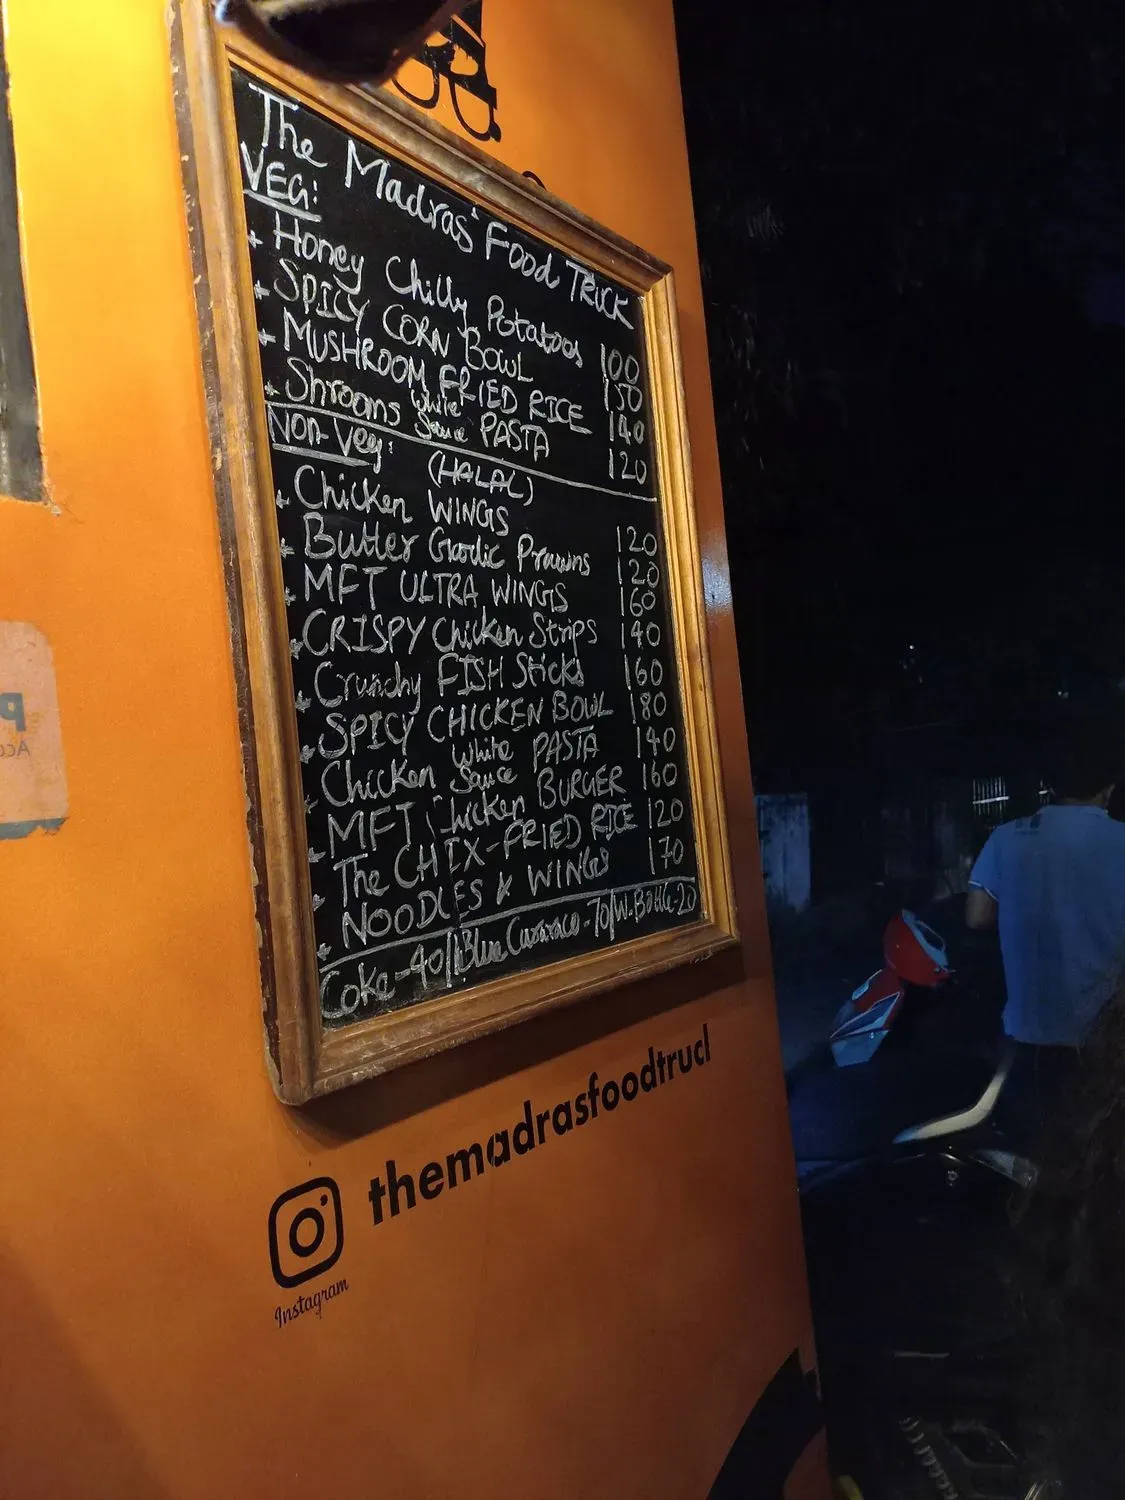 The Madras' Food TRUCK
VEG:
Honey Chilly Potatoes 100
SPICY CORN BOWL 150
MUSHROOM FRIED RICE 140
Shrooms White Sauce PASTA 120
Non-Veg: (HALAL)
Chicken WINGS 120
Butter Garlic Prawns 120
MFT ULTRA WINGS 160
CRISPY Chicken Strips 140
Crunchy FISH Sticks 160
SPICY CHICKEN BOWL 180
Chicken White Sauce PASTA 140
MFT Chicken BURGER 160
The CHIX-FRIED RICE 120
NOODLES & WINGS 170
Coke-40/Blue Curaraco-70/W.Bottle-20
themadrasfoodtruck
Instagram